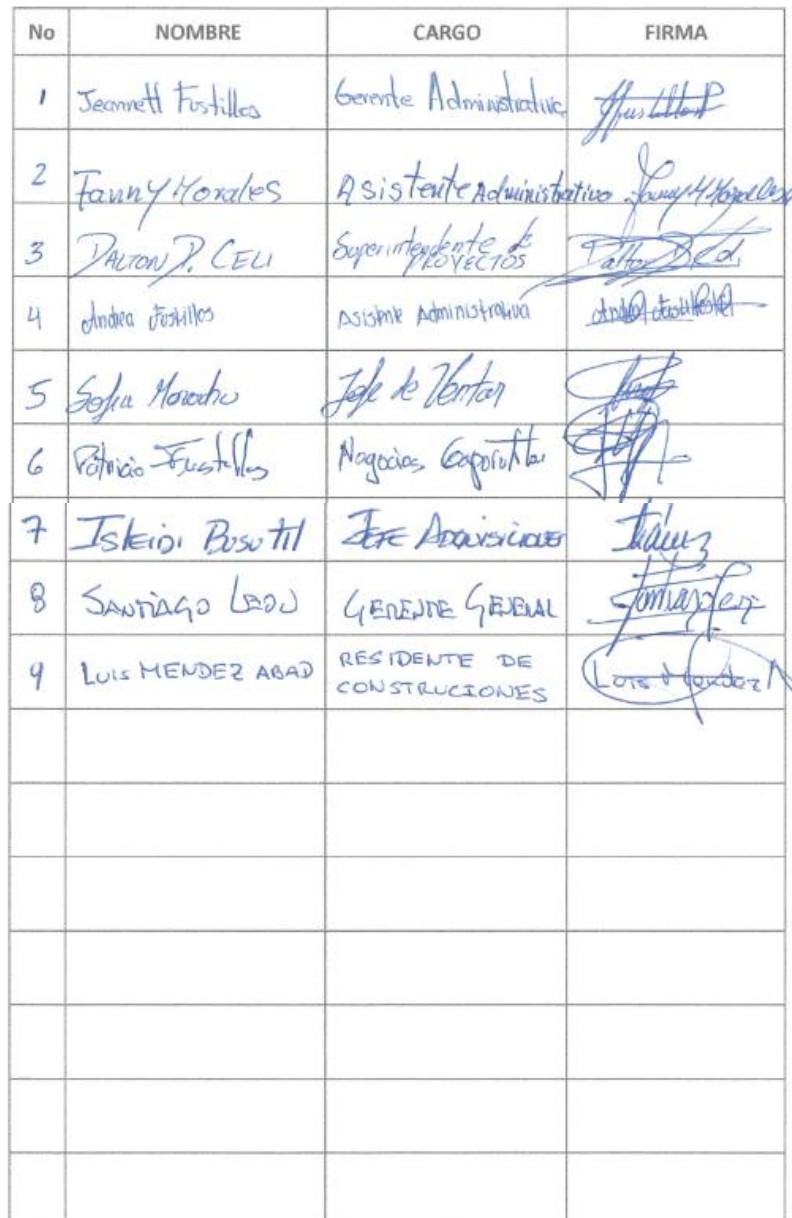 No NOMBRE CARGO FIRMA
1 Jeannett Fustillos Gerente Administrativa
2 Fanny Morales Asistente Administrativo Fanny M Morales
3 DALTON D. CELI Superintendente de PROYECTOS Dalton D. Celi
4 Andrea Fustillos Asistente Administrativa Andrea Fustillos
5 Sofia Morocho Jefe de Ventas
6 Patricio Fustillos Negocios
7 ISLEIDI BUSUTIL JEFE ADQUISICIONES
8 SANTIAGO LEON GERENTE GENERAL
9 LUIS MENDEZ ABAD RESIDENTE DE
CONSTRUCIONES Luis Mendez A